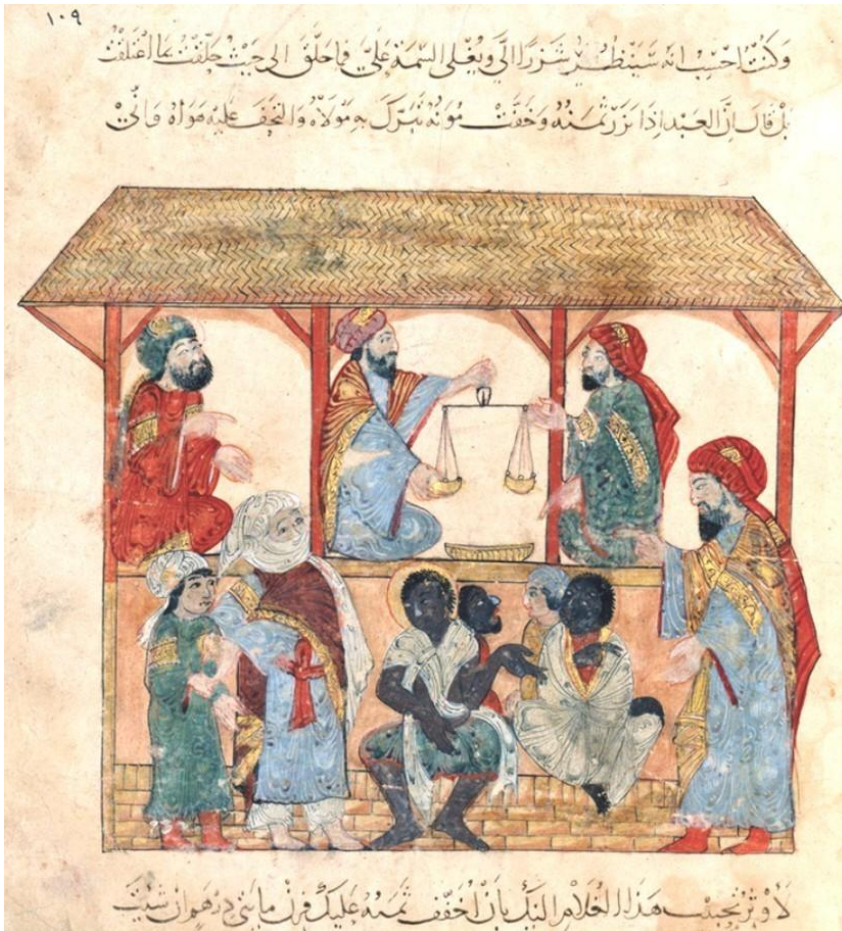 ١٠٩
وَكُنتُ احْسِبُ انه سَيَنظُرُ شَزَرًا الَيَّ وَيُغْلى السِّمَةَ عَلَيَّ فما حَلَّقَ الى حَيثُ حَلَّقتُ اعْتَلَقْتُ
بَل قالَ إنَّ العَبْدَ اِذَا نَزُرَ ثَمَنُهُ وَخَفَّتْ مُوَنُهُ تَبَرَّكَ بِهِ مَوْلَاهُ وَالتَحَفَ عليْهِ هَوَاهُ وَانّي
لَأُوثِرُ تحْبِيبَ هَذَا الغُلَامِ اليكَ بِاَنْ أُخَفِّفَ ثَمَنَهُ عَلَيكَ فَزِنْ مِايَتَي دِرْهَمٍ ان شِيتَ